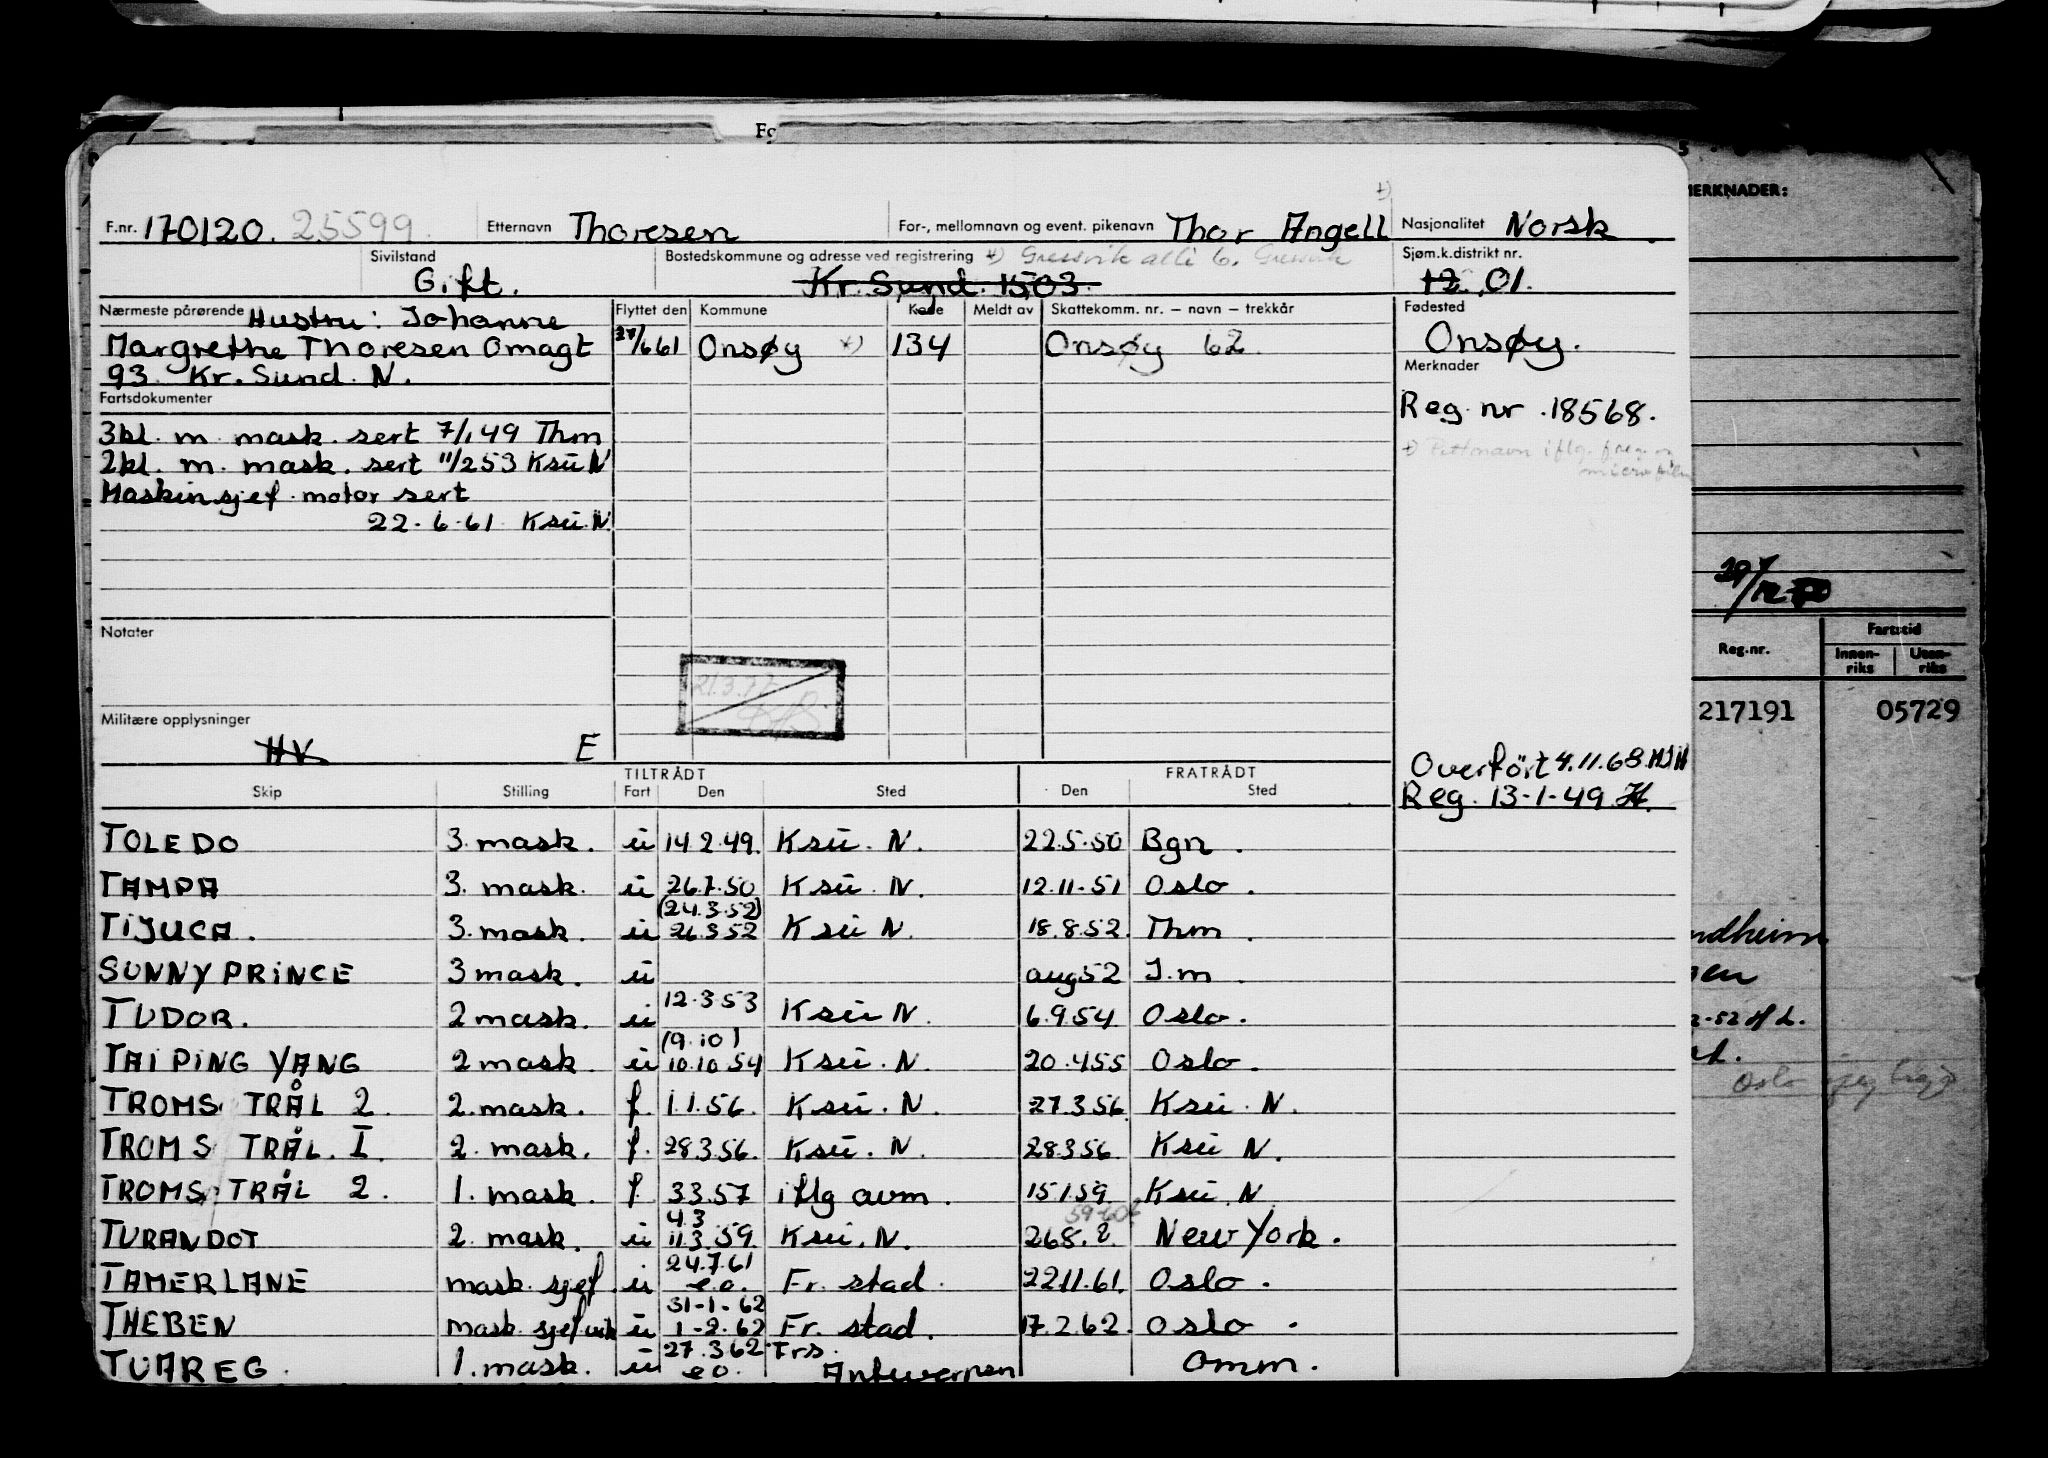 Fo
MERKNADER:
F.nr. 170120. 25599. Etternavn Thoresen For-, mellomnavn og event. pikenavn Thor Angell +) Nasjonalitet Norsk
Sivilstand Gift. Bostedskommune og adresse ved registrering +) Gressvik alle 6. Gressvik Kr. Sund. 1503. Sjøm.k.distrikt nr. 12 01.
Nærmeste pårørende Hustru: Johanne Flyttet den Kommune Kode Meldt av Skattekomm. nr. – navn – trekkår Fødested
Margrethe Thoresen Omagt /6 61 Onsøy +) 134 Onsøy 62 Onsøy.
93. Kr. Sund. N. Merknader
Fartsdokumenter
Reg. nr. 18568.
3kl. m. mask. sert 7/1 49 Thm
2kl. m. mask. sert 11/2 53 Ksü N
Maskinsjef. motor sert
22-6-61 Ksü. N.
Notater
Reg.nr. Fartstid
Innen-riks Uten-riks
217191 05729
Militære opplysninger
HV E
Overført 4.11.68
Reg. 13-1-49
TILTRÅDT FRATRÅDT
Skip Stilling Fart Den Sted Den Sted
TOLEDO 3. mask. ü 14.2.49. Ksü. N. 22.5.50 Bgn.
TAMPA 3. mask. ü 26.7.50 Ksü. N. 12.11.51 Oslo.
TIJUCA. 3. mask. ü (24.3.52) 26.3 52 Ksü N. 18.8.52. Thm.
SUNNY PRINCE 3 mask. ü aug 52 I.m.
TUDOR. 2 mask. ü 12.3.53 Ksü N. 6.9.54 Oslo.
TAI PING YANG 2 mask. ü (9.10) 10.10.54 Ksü. N. 20.4.55 Oslo.
TROMS TRÅL 2. 2. mask. f. 1.1.56. Ksü. N. 27.3.56 Ksü. N.
TROMS TRÅL. I. 2. mask. f. 28.3.56. Ksü. N. 28.3.56. Ksü N.
TROMS TRÅL 2. 1. mask. f 3.3.57 iflg avm. 15.1.59. Ksü. N
TURANDOT 2. mask. ü 4.3 11.3.59. Ksü. N. 26.8.? New York.
TAMERLANE mask. sjef. ü 24.7.61 e.o. Fr. stad. 22.11.61. Oslo.
THEBEN mask. sjef vik ü 31-1-62 1-2.62 Fr. stad. 17.2.62. Oslo.
TUAREG. 1. mask. ü 27.3.62 e o. Frs. Antwerpen Omm.